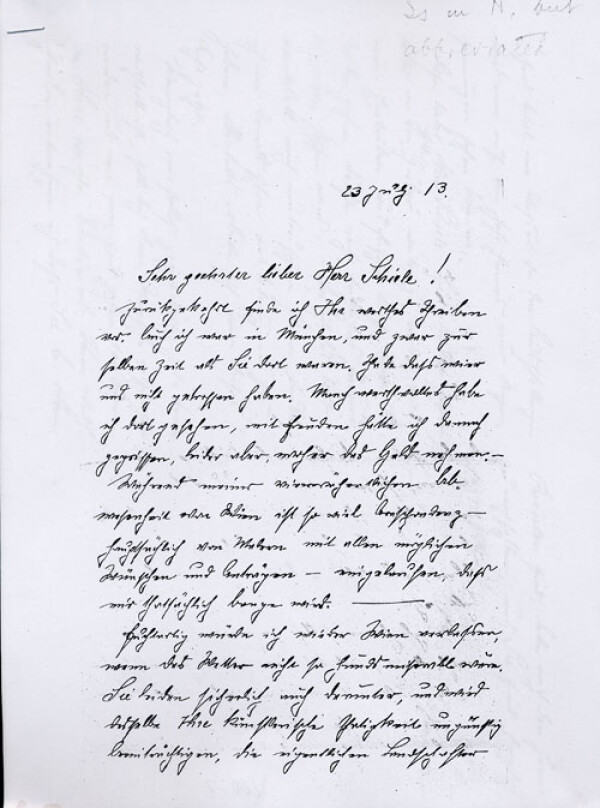 Is in N. but
abbreviated
23 July. 13.
Sehr geehrter lieber Herr Schiele!
Zurückgekehrt finde ich Ihr werthes Schreiben
vor. Auch ich war in München, und zwar zur
selben Zeit als Sie dort waren. Schade dass wir
uns nicht getroffen haben. Manch werthvolles habe
ich dort gesehen, mit Freuden hätte ich danach
gegriffen, leider aber, woher das Geld nehmen. –
Während meiner vierwöchentlichen Ab-
wesenheit von Wien ist so viel Correspondenz –
hauptsächlich von Malern mit allen möglichen
Wünschen und Anträgen – eingelaufen, dass
mir thatsächlich bange wird. –
Fluchtartig würde ich wieder Wien verlassen,
wenn das Wetter nicht so hundsmiserabel wäre.
Sie leiden sicherlich auch darunter, und wird
dasselbe Ihre künstlerische Thätigkeit ungünstig
beeinträchtigen, die eigentlichen Landschafter